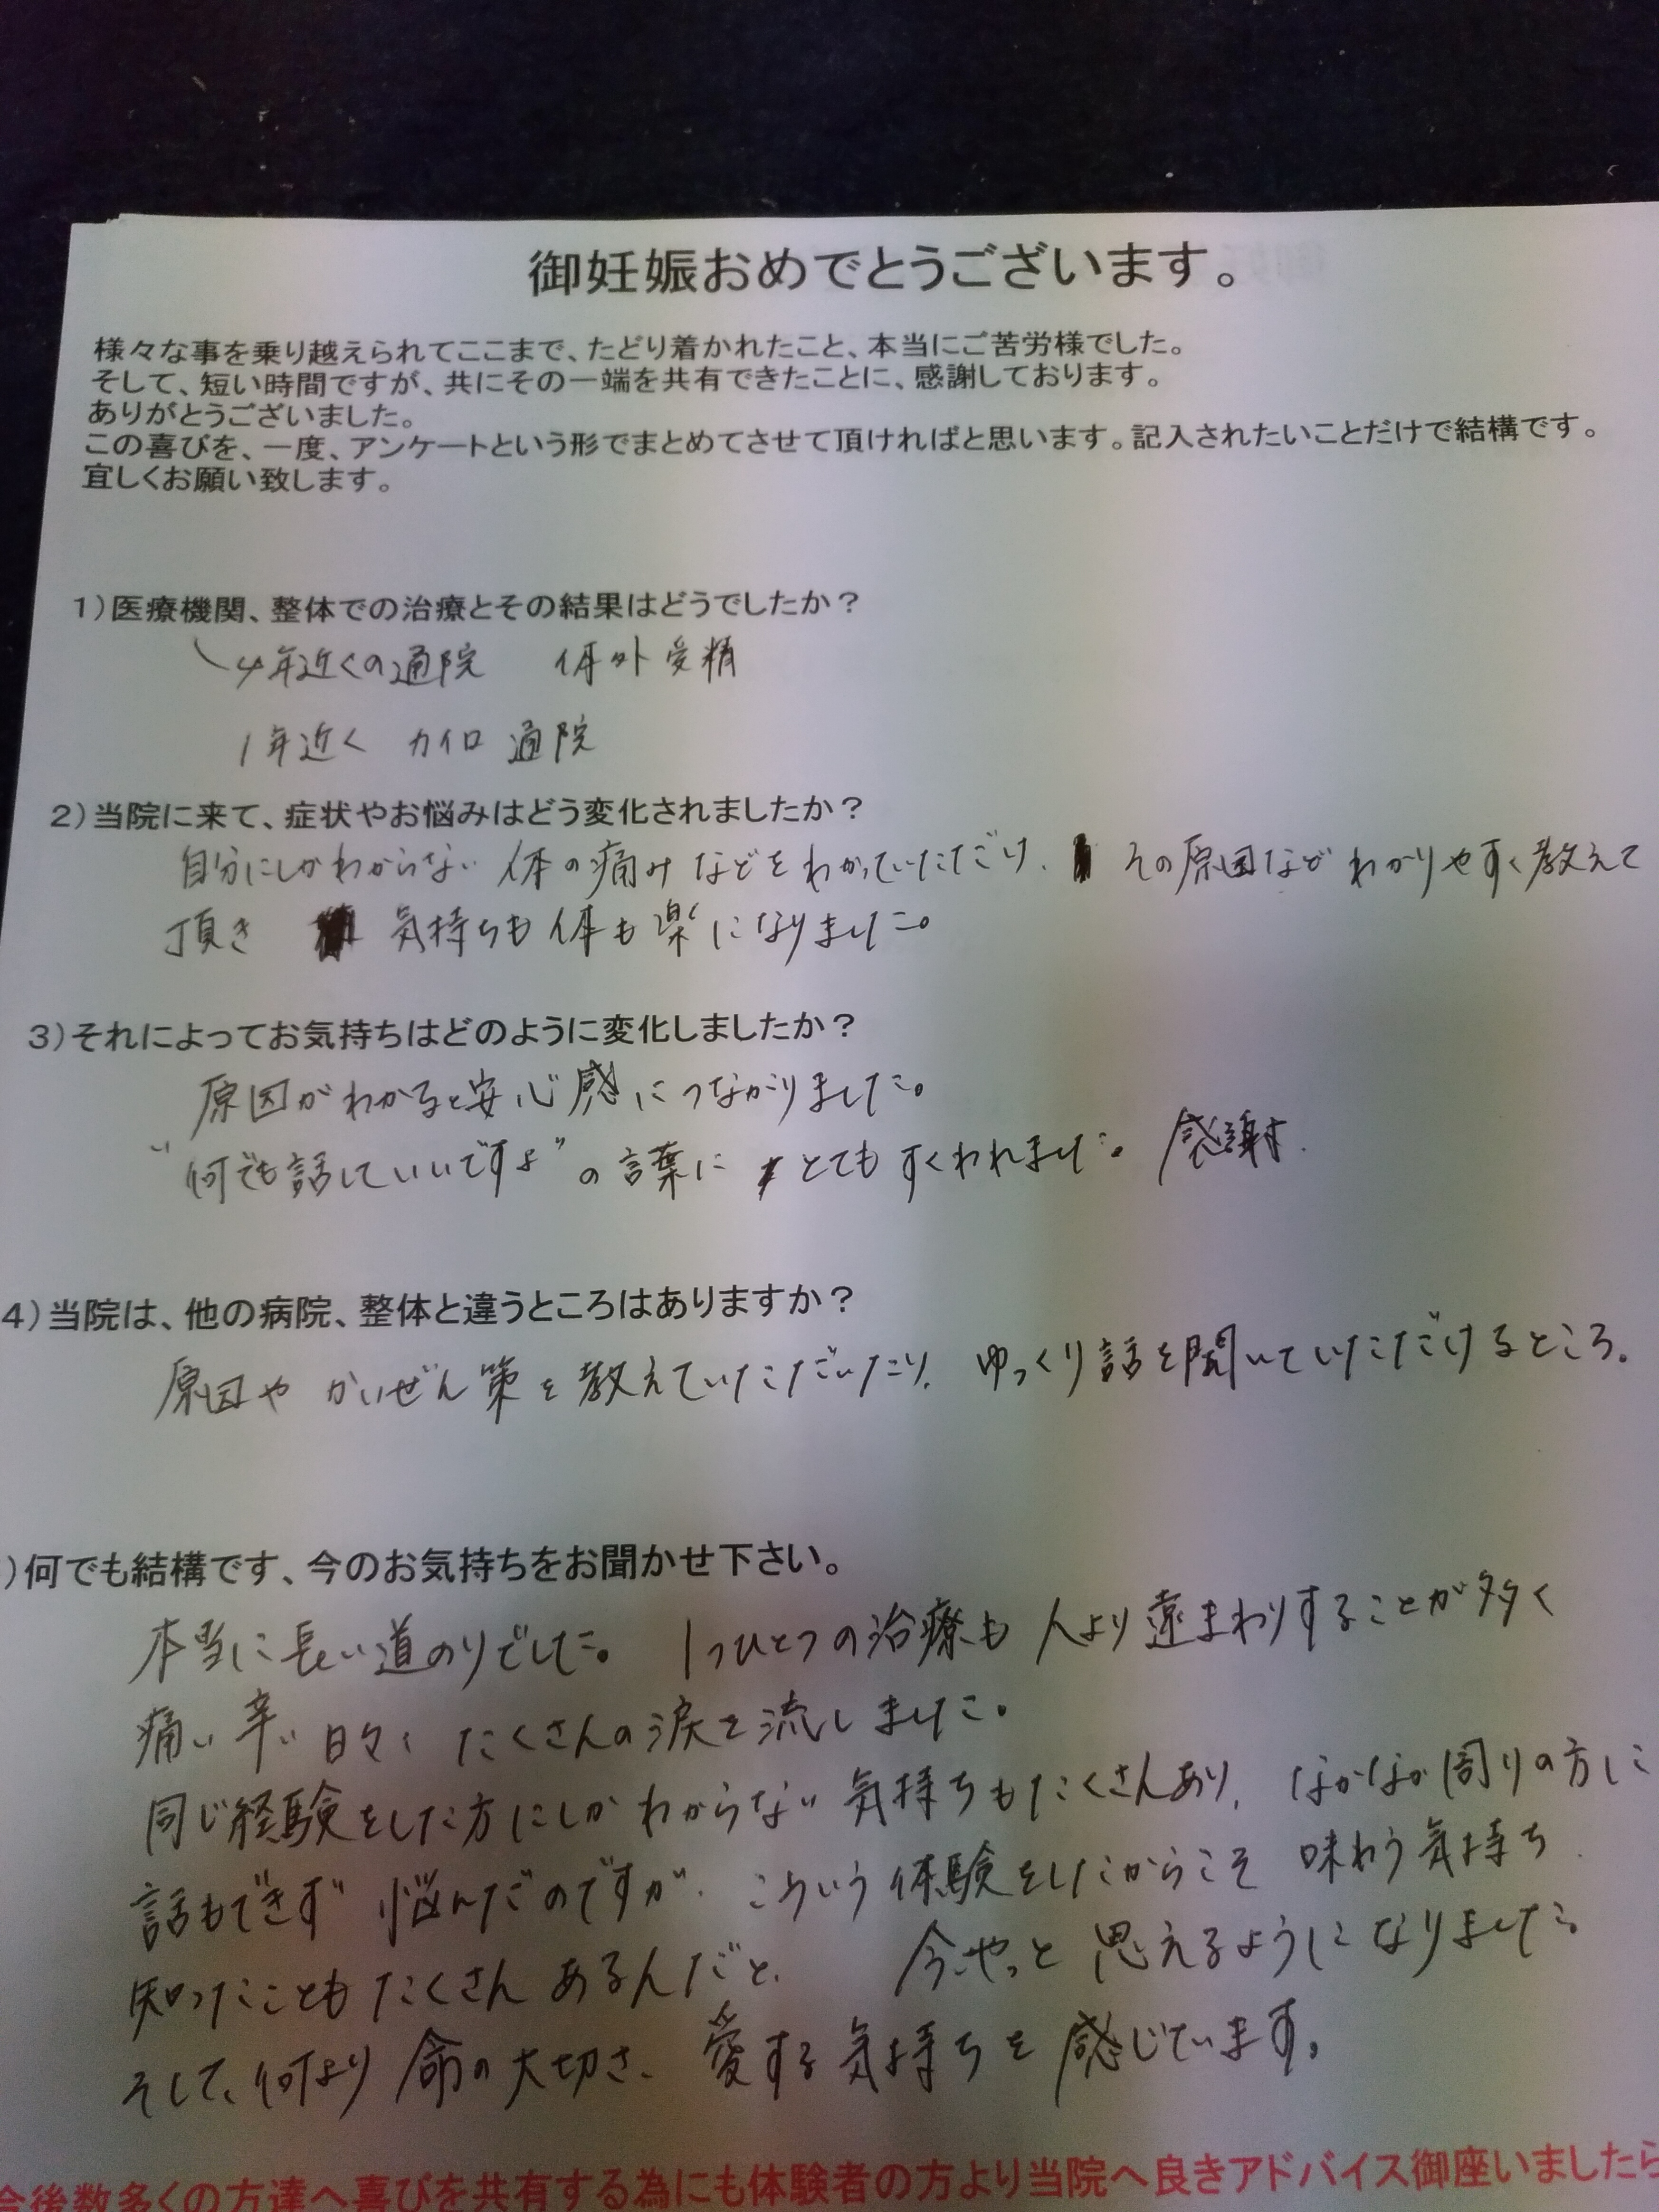 御妊娠おめでとうございます。
様々な事を乗り越えられてここまで、たどり着かれたこと、本当にご苦労様でした。
そして、短い時間ですが、共にその一端を共有できたことに、感謝しております。
ありがとうございました。
この喜びを、一度、アンケートという形でまとめてさせて頂ければと思います。記入されたいことだけで結構です。
宜しくお願い致します。
1)医療機関、整体での治療とその結果はどうでしたか？
4年近くの通院　体外受精
1年近く　カイロ　通院
2)当院に来て、症状やお悩みはどう変化されましたか？
自分にしかわからない 体の痛みなどをわかっていただけ、その原因など わかりやすく教えて
頂き　気持ちも体も楽になりました。
3)それによってお気持ちはどのように変化しましたか？
原因がわかると安心感につながりました。
“何でも話していいですよ”の言葉に とても すくわれました。感謝.
4)当院は、他の病院、整体と違うところはありますか？
原因や かいぜん策を教えていただいたり、ゆっくり話を聞いていただけるところ。
)何でも結構です、今のお気持ちをお聞かせ下さい。
本当に長い道のりでした。1つひとつの治療も 人より遠まわりすることが多く
痛い 辛い 日々で たくさんの涙を流しました。
同じ経験をした方にしかわからない気持ちもたくさんあり、なかなか周りの方に
話もできず 悩んだのですが、こういう体験をしたからこそ 味わう気持ち、
知ったこともたくさんあるんだと、今やっと思えるようになりました。
そして、何より 命の大切さ、愛する気持ちを感じています。
今後数多くの方達へ喜びを共有する為にも体験者の方より当院へ良きアドバイス御座いましたら